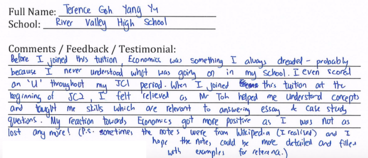 Full Name: Terence Goh Yang Yu
School: River Valley High School
Comments / Feedback / Testimonial:
Before I joined this tuition, Economics was something I always dreaded - probably
because I never understood what was going on in my school. I even scored
an 'U' throughout my JC1 period. When I joined this tuition at the
beginning of JC2, I felt relieved as Mr Toh helped me understand concepts
and taught me skills which are relevant to answering essay & case study
questions. My reaction towards Economics got more positive as I was not so
lost any more! (P.S. sometimes the notes were from Wikipedia (I realised) and I
hope the notes could be more detailed and filled
with examples for reference.)